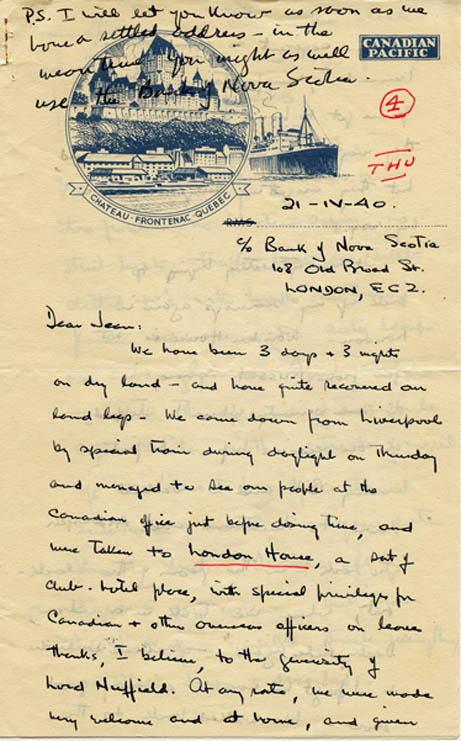 P.S. I will let you know as soon as we
have a settled address – in the
meantime you might as well
use the Bank of Nova Scotia.
CANADIAN
PACIFIC
CHATEAU · FRONTENAC · QUEBEC
4
THU
21-IV-40.
RMS
c/o Bank of Nova Scotia
108 Old Broad St.
LONDON, EC2.
Dear Jean:
We have been 3 days + 3 nights
on dry land – and have quite recovered our
land legs – We came down from Liverpool
by special train during daylight on Thursday
and managed to see our people at the
Canadian office just before closing time, and
were taken to London House, a sort of
club-hotel place, with special privileges for
Canadian + other overseas officers on leave
thanks, I believe, to the generosity of
Lord Nuffield. At any rate, we were made
very welcome and at home, and given